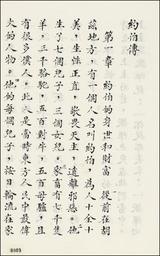 約伯傳
第一章 約伯的身世和財富 從前在胡
茲地方,有一個人名叫約伯,為人十全十
美,生性正直,敬畏天主,遠離邪惡。他
生了七個兒子,三個女兒。家畜有七千隻
羊,三千駱駝,五百對牛,五百母驢,且
有很多僕人:此人是當時東方人中最偉
大的人物。他的每個兒子,按日輪流在家